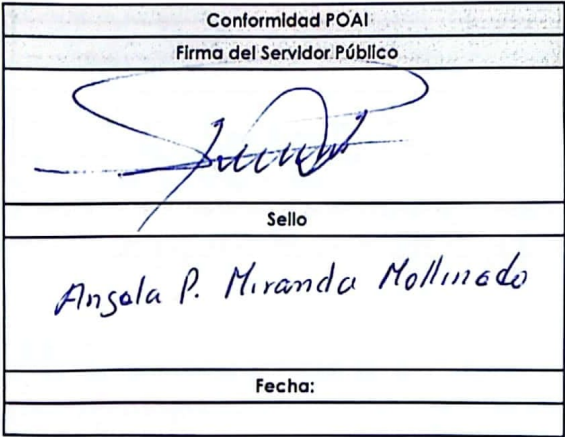 Conformidad POAI
Firma del Servidor Público
Sello
Angela P. Miranda Mollinedo
Fecha: